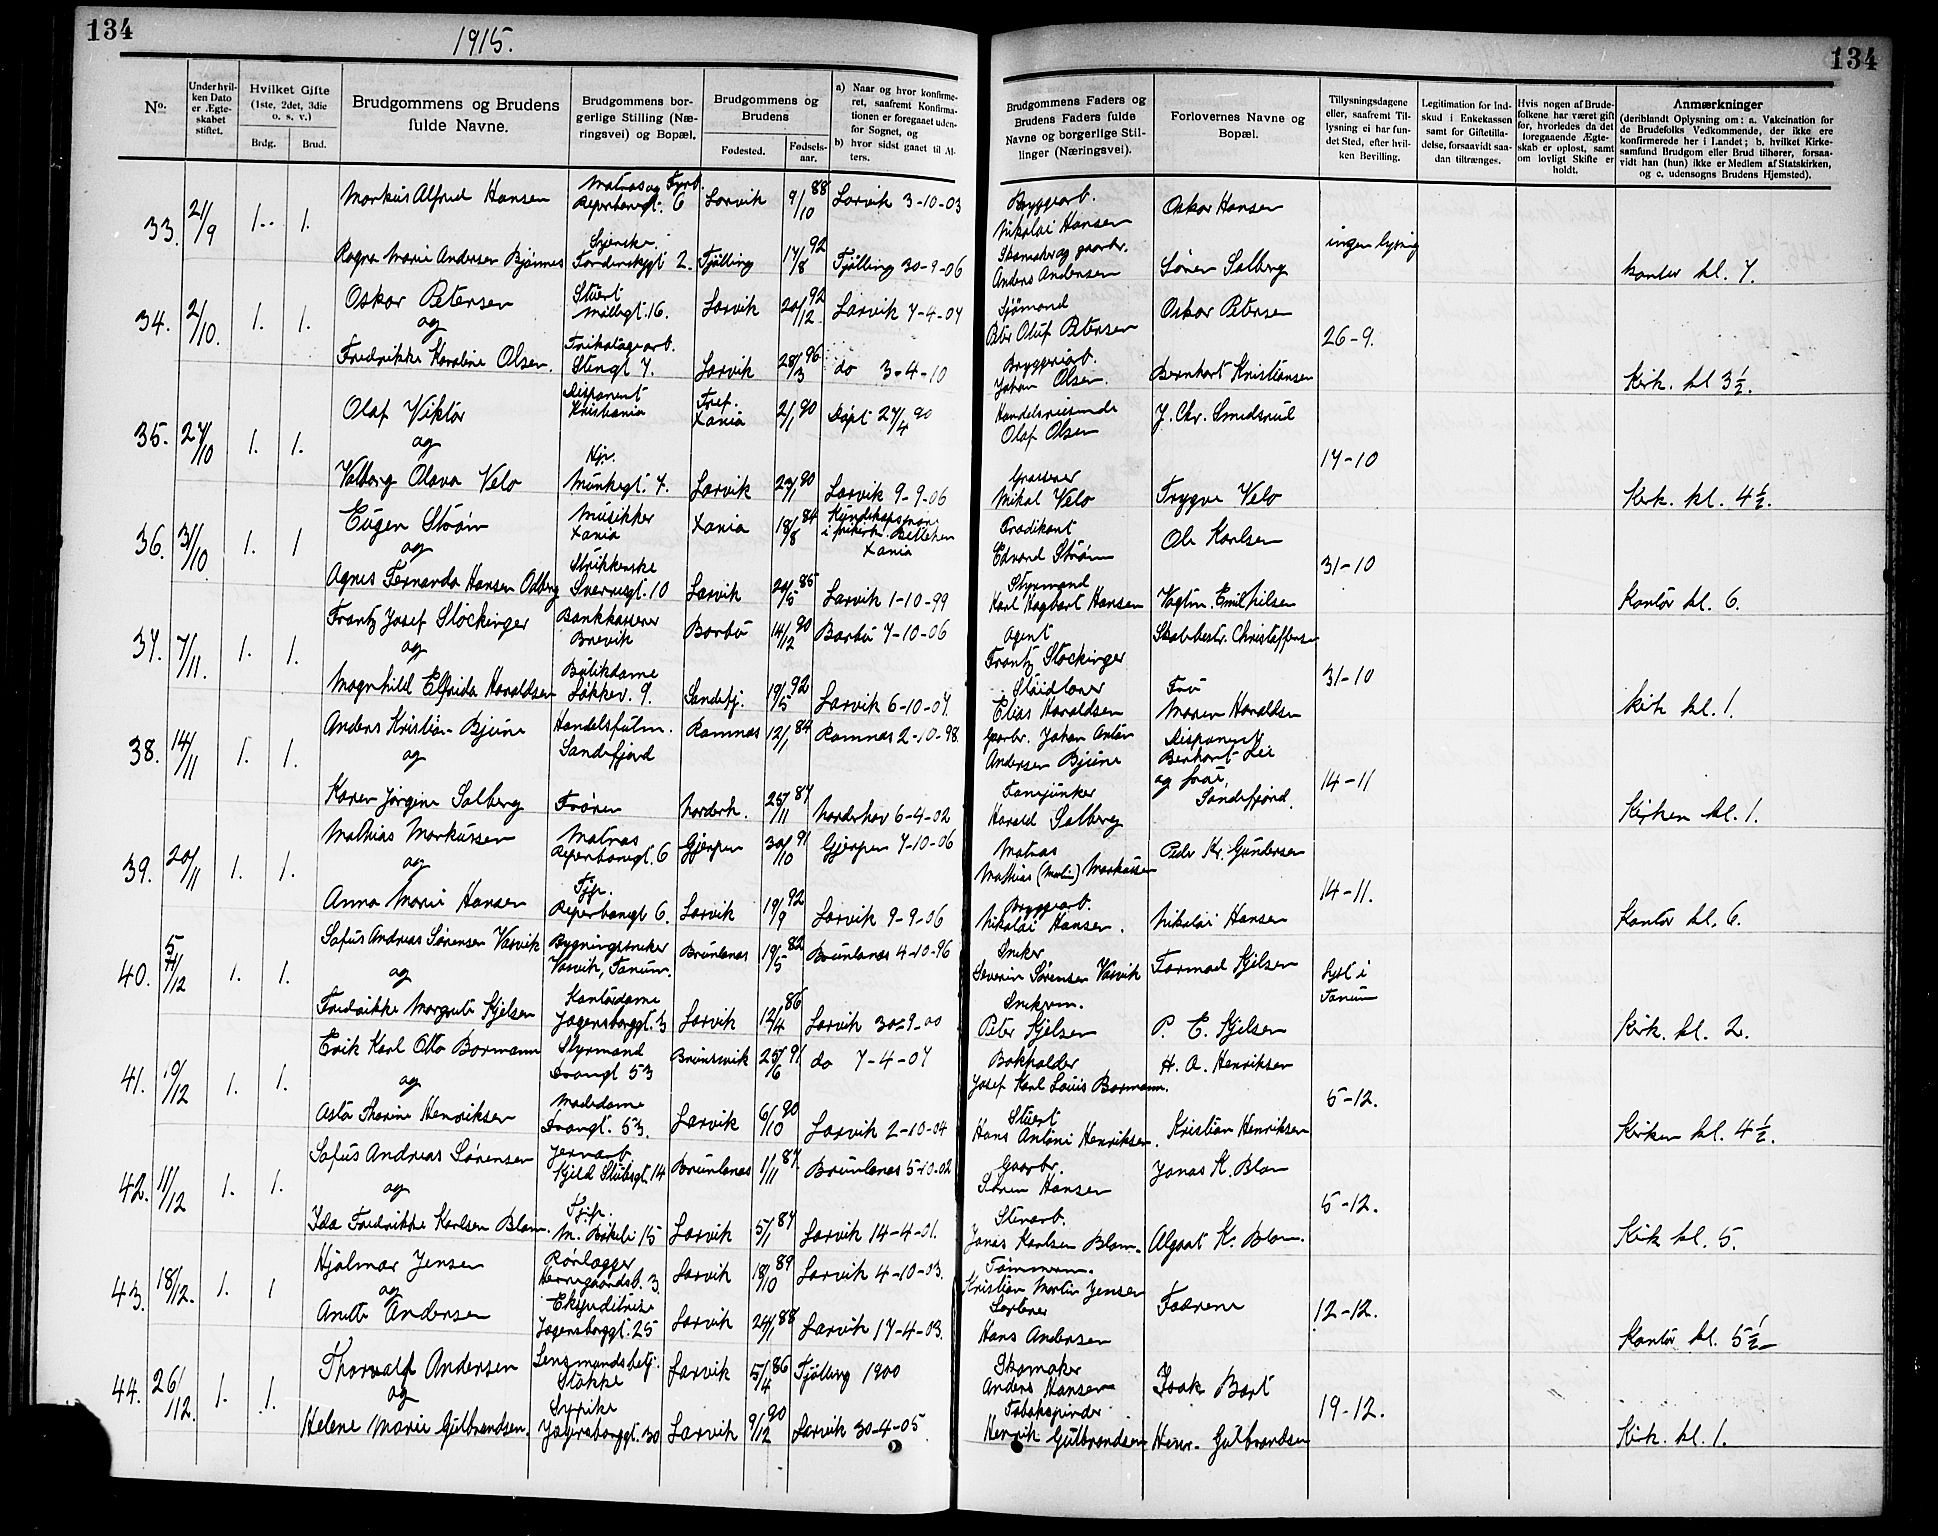 134
1915.
No.
Under hvilken Dato er Ægteskabet stiftet.
Hvilket Gifte
(1ste, 2det, 3die o. s. v.)
Brdg.
Brud.
Brudgommens og Brudens fulde Navne.
Brudgommens borgerlige Stilling (Næringsvei) og Bopæl.
Brudgommens og Brudens
Fødested.
Fødselsaar.
a) Naar og hvor konfirmeret, saafremt Konfirmationen er foregaaet udenfor Sognet, og
b) hvor sidst gaaet til Alters.
33. 21/9 1. 1.
Markus Alfred Hansen
Matros og Fyrb.
Reperbanegt. 6
Larvik 9/10 88 Larvik 3-10-03
Ragna Marie Andersen Bjønnes
Syerske.
Tordenskgt 2. Tjølling 17/8 92 Tjølling 30-9-06
34. 2/10. 1. 1.
Oskar Petersen
og
Stuert
Møllegt. 16. Larvik 20/12 92 Larvik 7-4-07
Fredrikke Karoline Olsen.
Trikotagearb.
Stengt 7. Larvik 28/3 96 do 3-4-10
35. 27/10 1. 1.
Olaf Viktor
og
Disponent
Kristiania
Xania 2/1 90 Døpt 27/4 90
Valborg Olava Velo
Hjr.
Munkegt. 7. Larvik 23/1 90 Larvik 9-9-06
36. 31/10 1. 1
Eugen Strøm
og
Musikker
Xania Xania 18/8 84
Xania
Agnes Fernanda Hansen Odberg
Strikkerske
Sverresgt. 10 Larvik 20/5 85 Larvik 1-10-99
37. 7/11. 1. 1.
Frantz Josef Stockinger
og
Bankkasserer
Brevik Barbu 14/12 90 Barbu 7-10-06
Magnhild Elfrida Haraldsen
Butikdame
Løkkev. 9. Sandefj. 19/5 92 Larvik 6-10-07.
38. 14/11 1. 1.
Anders Kristian Bjune
og
Handelsfulm.
Sandefjord Ramnæs 12/1 84 Ramnæs 2-10-98.
Karen Jørgine Solberg Frøken Norderh. 25/11 87 Norderhov 6-4-02
39. 20/11 1. 1.
Mathias Markussen
og
Matros
Reperbanegt. 6 Gjerpen 30/10 91 Gjerpen 7-10-06
Anna Marie Hansen
Tjp.
Reperbangt 6. Larvik 19/9 92 Larvik 9-9-06
40. 5/12 1. 1.
Sofus Andreas Sørensen Vasvik
og
Bygningssneker
Vasvik, Tanum. Brunlanes 19/5 82 Brunlanes 4-10-96
Fredrikke Margrete Kjelsen
Kontordame
Jegersborggt. 3 Larvik 12/4 86 Larvik 30-9-00
41. 10/12 1. 1.
Erik Karl Otto Bormann
og
Styrmand
Trangt 53 Brunsvik 25/6 91 do 7-4-07
Asta Tharine Henriksen
Modedame
Trangt. 53. Larvik 6/10 90 Larvik 2-10-04
42. 11/12 1. 1.
Sofus Andreas Sørensen
og
Jernarb
Kjeld Stubsgt. 14 Brunlanes 1/11 87. Brunlanes 5-10-02
Ida Fredrikke Karlsen Blom.
Tjp.
M. Bøkeli 15 Larvik 5/1 87 Larvik 14-4-01.
43. 18/12. 1. 1
Hjalmar Jensen
og
Rørlægger
Herregaardsb. 3 Larvik 18/10 89 Larvik 4-10-03.
Anette Andersen
Ekspeditrise
Jegersborggt. 25 Larvik 24/1 88 Larvik 17-4-03.
44. 26/12. 1. 1.
Thorvald Andersen
og
Lensmandsbetj.
Stokke Larvik 5/4 86 Tjølling 1900
Helene Marie Gulbrandsen.
Sypike
Jegersborggt. 30 Larvik 9/12 90 Larvik 30-4-05.
134
Brudgommens Faders og Brudens Faders fulde Navne og borgerlige Stillinger (Næringsvei).
Forlovernes Navne og Bopæl.
Tillysningsdagene eller, saafremt Tillysning ei har fundet Sted, efter hvilken Bevilling.
Legitimation for Indskud i Enkekassen samt for Giftetilladelse, forsaavidt saadan tiltrænges.
Hvis nogen af Brudefolkene har været gift før, hvorledes da det foregaaende Ægteskab er opløst, samt om lovligt Skifte er holdt.
Anmærkninger
(deriblandt Oplysning om: a. Vakcination for de Brudefolks Vedkommende, der ikke ere konfirmerede her i Landet; b. hvilket Kirkesamfund Brudgom eller Brud tilhører, forsaavidt han (hun) ikke er Medlem af Statskirken, og c. udensogns Brudens Hjemsted).
Bryggearb.
Nikolai Hansen Oskar Hansen
ingen lysning
Skomaker og gaarbr.
Anders Andersen Søren Solberg
kontor kl. 7.
Sjømand
Peter Oluf Petersen Oskar Petersen
26-9.
Bryggeriarb.
Johan Olsen. Bernhart Kristiansen
Kirk. kl 3½.
Handelsreisende
Olaf Olsen J. Chr. Smedsrud
17-10
Mikal Velo Trygve Velo
Kirk. kl. 4½.
Prædikant
Edvard Strøm Ole Karlsen
31-10
Styrmand
Karl Hagbart Hansen Vagtm. Emil Nilsen
Kontor kl. 6.
Agent
Frantz Stockinger Skolebestr. Christoffersen
31-10
Elias Haraldsen
Fru
Maren Haraldsen
kirk kl. 1.
Gaarbr. Johan Anton
Andersen Bjune
Disponent
Bernhart Lie
og frue,
Sandefjord.
14-11
Fanejunker
Harald Solberg
Kirken kl. 1.
Matros
Mathias (Martin) Markussen Peder Kr. Gundersen
14-11.
Bryggearb.
Nikolai Hansen. Nikolai Hansen
Kontor kl. 6.
Sneker
Severin Sørensen Vasvik Tormod Kjelsen
lyst i
Tanum
Snekerm.
Peter Kjelsen P. E. Kjelsen
Kirk. kl. 2.
Bokholder
Josef Karl Louis Bormann. H. A. Henriksen
5-12.
Stuert
Hans Antoni Henriksen. Kristian Henriksen
Kirken kl. 4½.
Gaarbr.
Søren Hansen Jonas K. Blom
5-12.
Stenarb.
Jonas Karlsen Blom. Algaat K. Blom.
Kirk kl. 5.
Tømmerm.
Kristian Martin Jensen
Foðrene
12-12.
Sorterer
Hans Andersen
Kontor kl. 5½
Skomaker
Anders Hansen Isak Bart
19-12.
Tobakspinder
Henrik Gulbrandsen Henr. Gulbrandsen
Kirk. kl. 1.